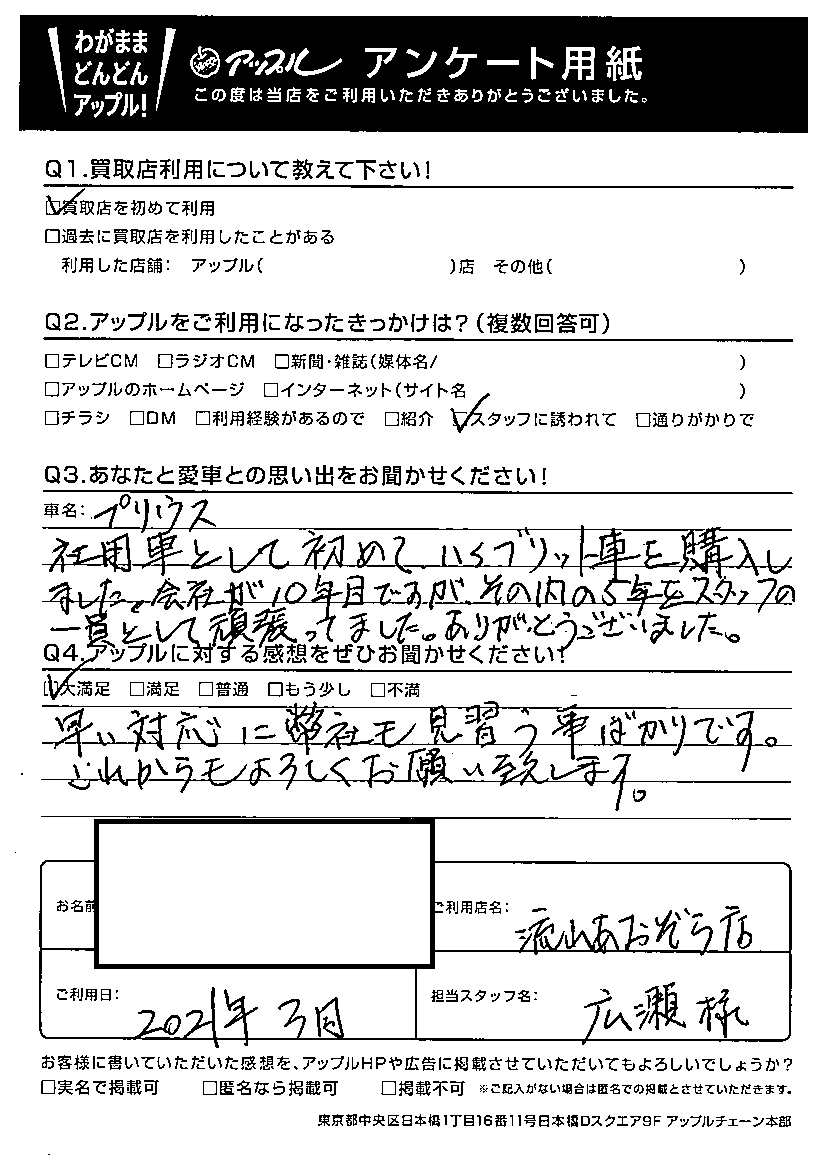 わがまま
どんどん
アップル!
アップル アンケート用紙
この度は当店をご利用いただきありがとうございました。
Q1.買取店利用について教えて下さい!
☑買取店を初めて利用
□過去に買取店を利用したことがある
利用した店舗: アップル( )店 その他( )
Q2.アップルをご利用になったきっかけは?(複数回答可)
□テレビCM □ラジオCM □新聞・雑誌(媒体名/ )
□アップルのホームページ □インターネット(サイト名 )
□チラシ □DM □利用経験があるので □紹介 ☑スタッフに誘われて □通りがかりで
Q3.あなたと愛車との思い出をお聞かせください!
車名: プリウス
社用車として初めて、ハイブリット車を購入し
ました。会社が10年目ですが、その内の5年をスタッフの
一員として頑張ってました。ありがとうございました。
Q4.アップルに対する感想をぜひお聞かせください!
☑大満足 □満足 □普通 □もう少し □不満
早い対応に弊社も見習う事ばかりです。
これからもよろしくお願い致します。
お名前
ご利用店名: 流山あおぞら店
ご利用日: 2021年 3月
担当スタッフ名: 広瀬 様
お客様に書いていただいた感想を、アップルHPや広告に掲載させていただいてもよろしいでしょうか?
□実名で掲載可 □匿名なら掲載可 □掲載不可 ※ご記入がない場合は匿名での掲載とさせていただきます。
東京都中央区日本橋1丁目16番11号日本橋Dスクエア9F アップルチェーン本部